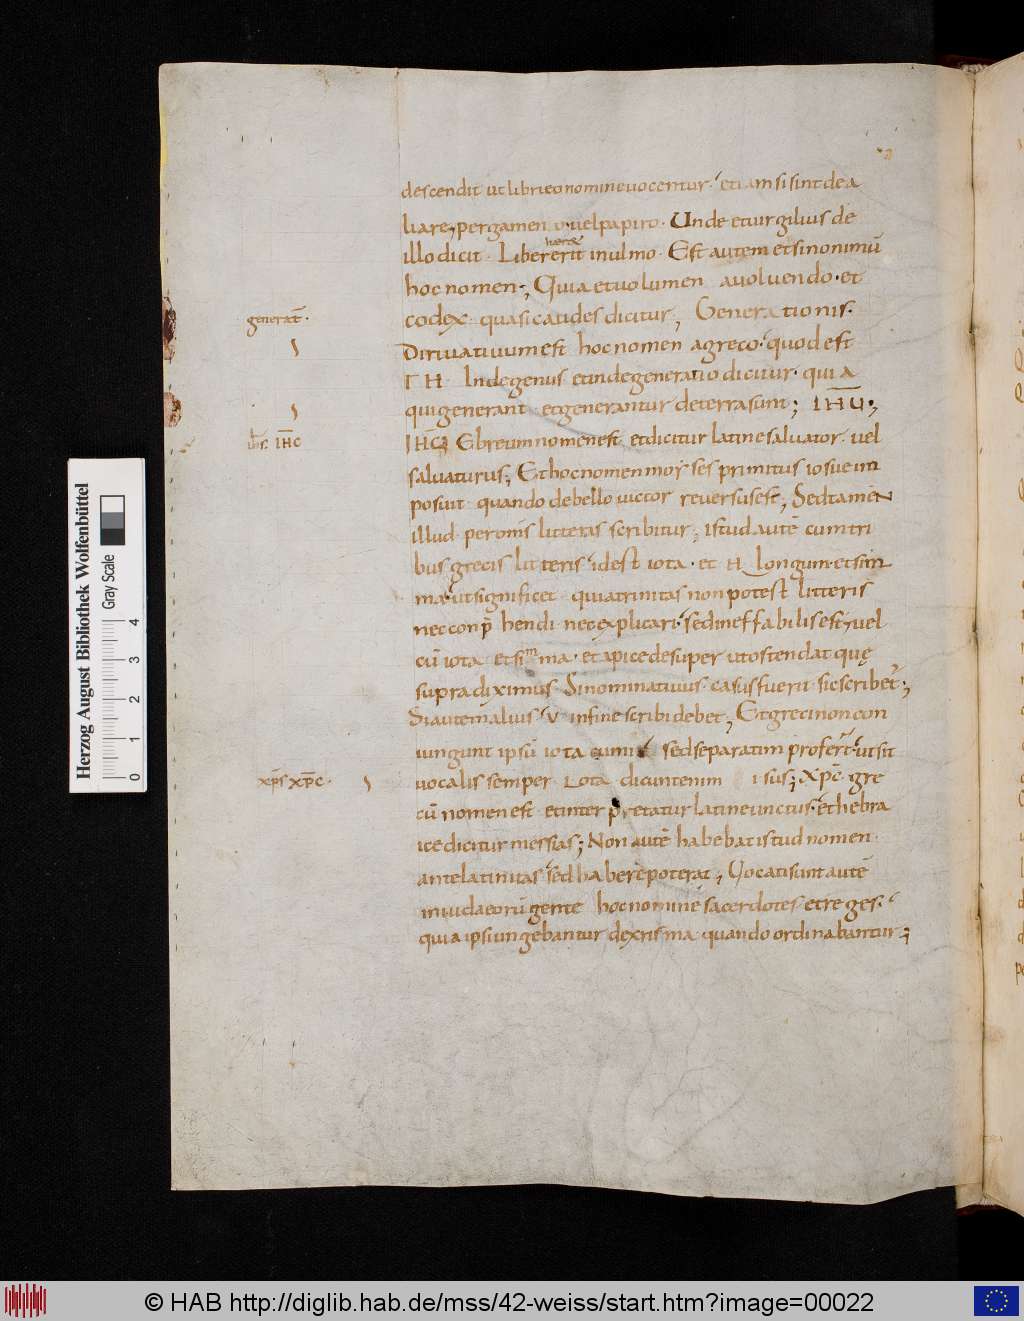 descendit ut libri eo nomine vocentur. etiam si sint de a
liare, pergameno uel papiro. Unde et uirgilius de
illo dicit. Liber erit in ulmo. Est autem et sinonimū
hoc nomen; Quia et uolumen a uoluendo. et
codex. quasi caudes dicitur; Generationis.
generat̄.
Diriuatiuum est hoc nomen a greco. quod est
ΓΗ. Inde genus. et inde generatio dicitur. qui a
qui generant et generantur de terra sunt; IHU;
IHC
IHC; Ebreum nomen est. et dicitur latine saluator. uel
saluaturus; Et hoc nomen moyses primitus iosue im
posuit. quando de bello uictor reuersus est; Sed tamen
illud per omīs litteras scribitur; istud autē cum tri
bus grecis litteris. id est iota. et H longum. et sim
ma. ut significet quia trinitas non potest litteris
nec conp̄hendi nec explicari. sed ineffabilis est; uel
cū iota et simma. et apice desuper ut ostendat quę
supra diximus. Si nominatiuus casus fuerit. sic scribet̄;
Si autem alius. V in fine scribi debet; Et greci non con
iungunt ipsū iota cum sed separatim profert̄. ut sit
xp̄s xp̄c.
uocalis semper. Iota dicunt enim isus; Xp̄c. gre
cū nomen est. et interpretatur latine unctus. et hebra
ice dicitur messias; Non autē habebat istud nomen
ante latinitas. sed habere poterat; Uocati sunt autē
in iudaeorū gente hoc nomine sacerdotes et reges.
quia ipsi ungebantur de xrisma quando ordinabantur;
Herzog August Bibliothek Wolfenbüttel
Gray Scale
0 1 2 3 4
© HAB http://diglib.hab.de/mss/42-weiss/start.htm?image=00022